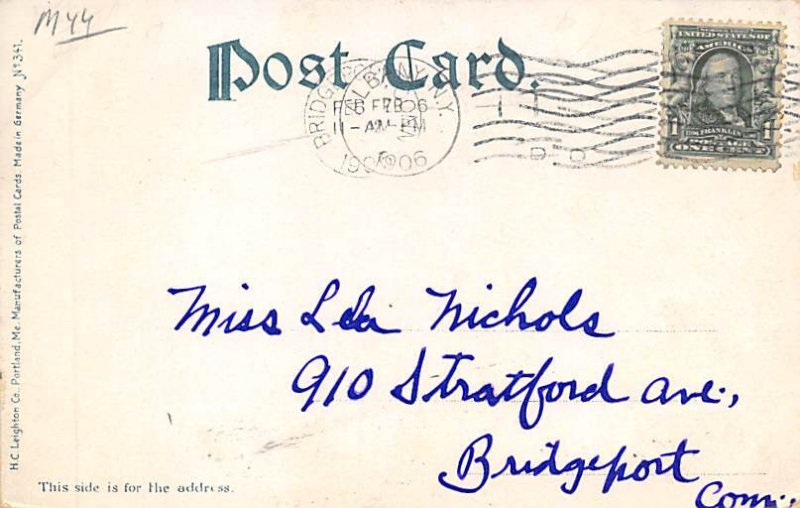 M44
Post Card.
BRIDGEPO
ALBANY N.Y.
FEB FEB 06
11-AM
1906
UNITED STATES OF
AMERICA
1 1
FRANKLIN
ONE CENT
H.C. Leighton Co., Portland, Me. Manufacturers of Postal Cards. Made in Germany No 341.
Miss Lela Nichols
910 Stratford Ave.,
Bridgeport
Conn.
This side is for the address.